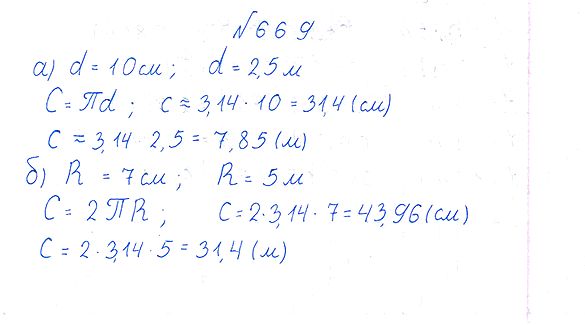 №669
а) d = 10 см; d = 2,5 м
C = πd; c ≈ 3,14 · 10 = 31,4 (см)
c ≈ 3,14 · 2,5 = 7,85 (м)
б) R = 7 см; R = 5 м
C = 2πR; C = 2 · 3,14 · 7 = 43,96 (см)
C = 2 · 3,14 · 5 = 31,4 (м)